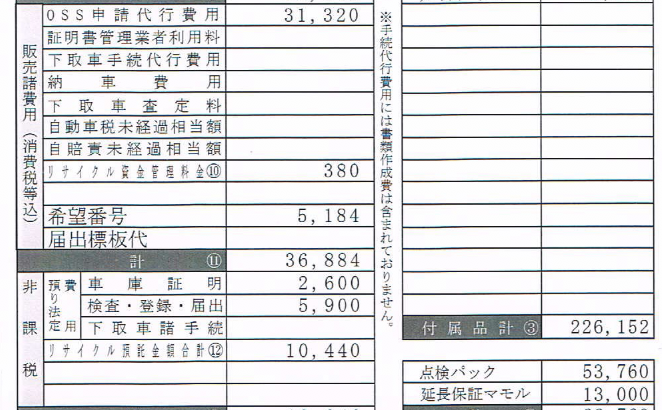 OSS申請代行費用 31,320
証明書管理業者利用料
下取車手続代行費用
納車費用
下取車査定料
自動車税未経過相当額
自賠責未経過相当額
リサイクル資金管理料金⑩ 380
希望番号 5,184
届出標板代
計 ⑪ 36,884
販売諸費用（消費税等込）
車庫証明 2,600
検査・登録・届出 5,900
下取車諸手続
預り法定費用
リサイクル預託金額合計⑫ 10,440
非課税
※手続代行費用には書類作成費は含まれておりません。
付属品計③ 226,152
点検パック 53,760
延長保証マモル 13,000